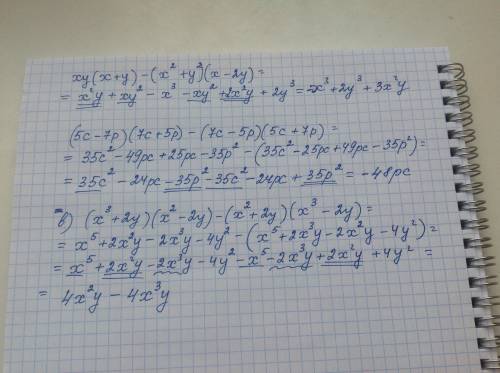 xy(x+y)-(x²+y²)(x-2y)=
= x²y+xy²-x³-xy²+2x²y+2y³=-x³+2y³+3x²y
(5c-7p)(7c+5p)-(7c-5p)(5c+7p)=
= 35c²-49pc+25pc-35p²-(35c²-25pc+49pc-35p²)=
= 35c²-24pc-35p²-35c²-24pc+35p²=-48pc
в) (x³+2y)(x²-2y)-(x²+2y)(x³-2y)=
= x⁵+2x²y-2x³y-4y²-(x⁵+2x³y-2x²y-4y²)=
= x⁵+2x²y-2x³y-4y²-x⁵-2x³y+2x²y+4y²=
= 4x²y-4x³y